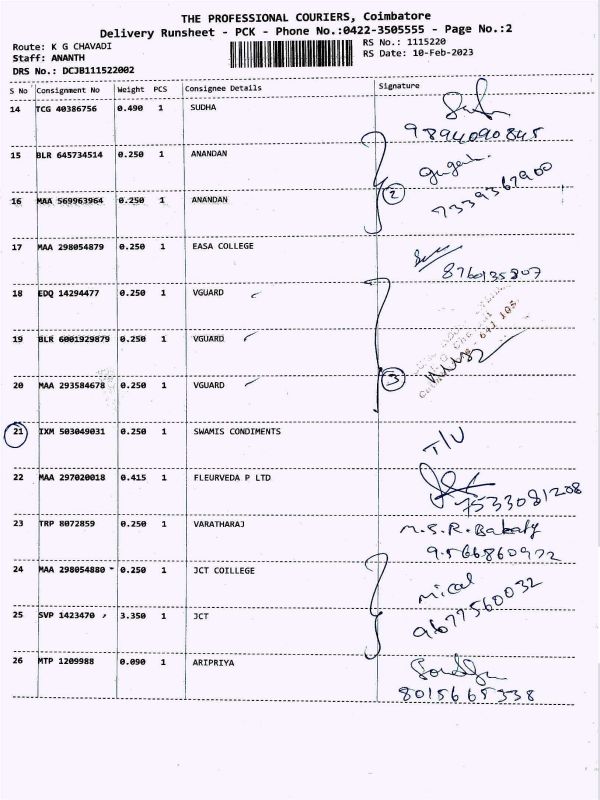 THE PROFESSIONAL COURIERS, Coimbatore
Delivery Runsheet - PCK - Phone No.:0422-3505555 - Page No.:2
Route: K G CHAVADI
RS No.: 1115220
Staff: ANANTH
RS Date: 10-Feb-2023
DRS No.: DCJB111522002
S No Consignment No Weight PCS Consignee Details Signature
14 TCG 40386756 0.490 1 SUDHA
9894090845
15 BLR 645734514 0.250 1 ANANDAN
16 MAA 569963964 0.250 1 ANANDAN
2
7339367900
17 MAA 298054879 0.250 1 EASA COLLEGE
8760135807
18 EDQ 14294477 0.250 1 VGUARD
19 BLR 6001929879 0.250 1 VGUARD
641 105
20 MAA 293584678 0.250 1 VGUARD
3
21 IXM 503049031 0.250 1 SWAMIS CONDIMENTS
T/U
22 MAA 297020018 0.415 1 FLEURVEDA P LTD
7533081208
23 TRP 8072859 0.250 1 VARATHARAJ
M.S.R.
9566860972
24 MAA 298054880 0.250 1 JCT COILLEGE
9677560032
25 SVP 1423470 3.350 1 JCT
26 MTP 1209988 0.090 1 ARIPRIYA
8015665338